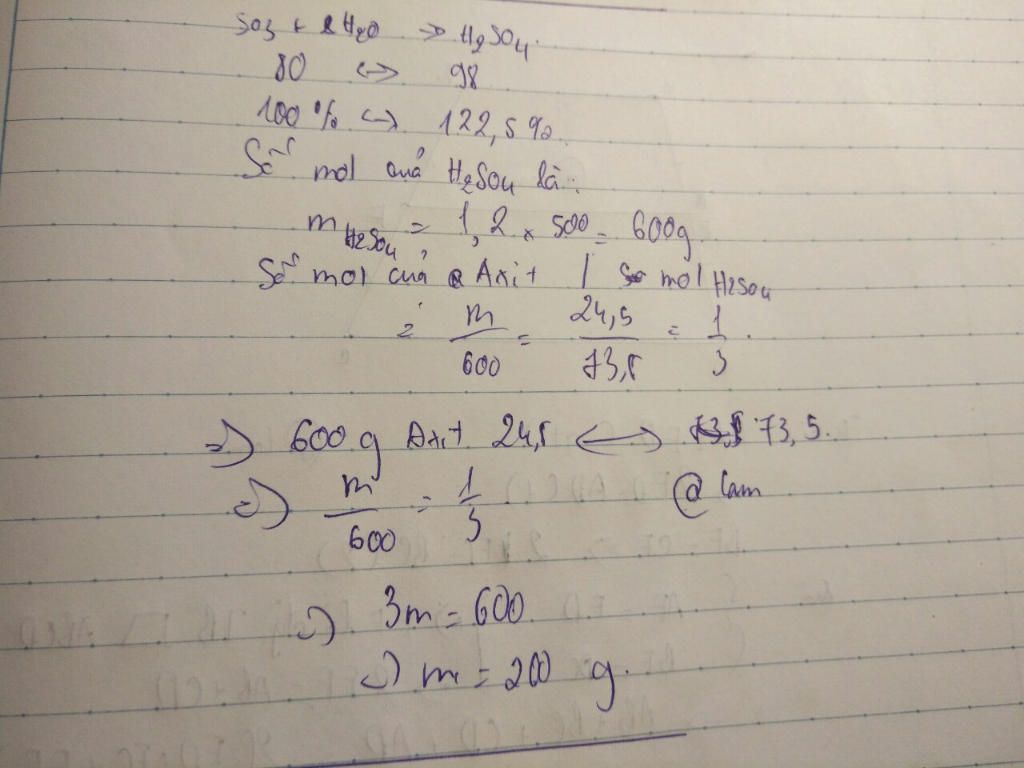 SO3 + H2O → H2SO4.
80 <-> 98
100% <-> 122,5%.
Số mol của H2SO4 là:
mH2SO4 = 1,2 x 500 = 600g
Số mol của Axit / mol H2SO4
= m/600 = 24,5/73,5 = 1/3.
=) 600g Axit 24,5 <-> 73,5.
=) m/600 = 1/3 @ lam
=) 3m = 600
=) m = 200 g.